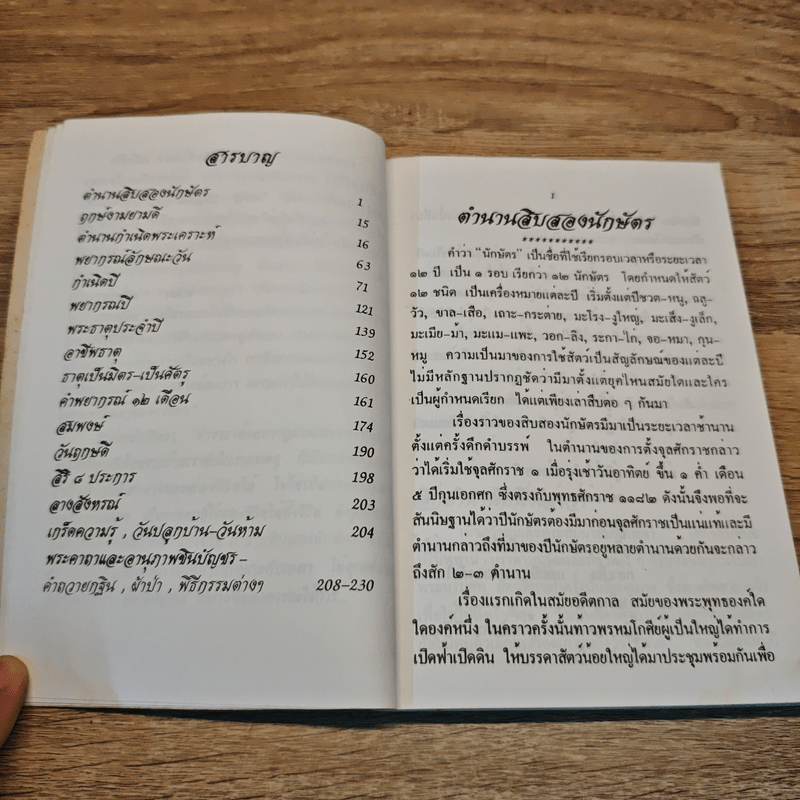 สารบาญ
ตำนานสิบสองนักษัตร 1
ฤกษ์งามยามดี 15
ตำนานกำเนิดพระเคราะห์ 16
พยากรณ์ลักษณะวัน 63
กำเนิดปี 71
พยากรณ์ปี 121
พระธาตุประจำปี 139
อาชีพธาตุ 152
ธาตุเป็นมิตร-เป็นศัตรู 160
คำพยากรณ์ ๑๒ เดือน 161
สมพงษ์ 174
วันฤกษ์ดี 190
สิริ ๘ ประการ 198
ลางสังหรณ์ 203
เกร็ดความรู้ , วันปลูกบ้าน-วันห้าม 204
พระคาถาและอานุภาพชินบัญชร -
คำถวายกฐิน , ผ้าป่า , พิธีกรรมต่างๆ 208-230
1
ตำนานสิบสองนักษัตร
***********
คำว่า "นักษัตร" เป็นชื่อที่ใช้เรียกรอบเวลาหรือระยะเวลา
๑๒ ปี เป็น ๑ รอบ เรียกว่า ๑๒ นักษัตร โดยกำหนดให้สัตว์
๑๒ ชนิด เป็นเครื่องหมายแต่ละปี เริ่มตั้งแต่ปีชวด-หนู, ฉลู-
วัว, ขาล-เสือ, เถาะ-กระต่าย, มะโรง-งูใหญ่, มะเส็ง-งูเล็ก,
มะเมีย-ม้า, มะแม-แพะ, วอก-ลิง, ระกา-ไก่, จอ-หมา, กุน-
หมู ความเป็นมาของการใช้สัตว์เป็นสัญลักษณ์ของแต่ละปี
ไม่มีหลักฐานปรากฏชัดว่ามีมาตั้งแต่ยุคไหนสมัยใดและใคร
เป็นผู้กำหนดเรียก ได้แต่เพียงเล่าสืบต่อ ๆ กันมา
เรื่องราวของสิบสองนักษัตรมีมาเป็นระยะเวลาช้านาน
ตั้งแต่ครั้งดึกดำบรรพ์ ในตำนานของการตั้งจุลศักราชกล่าว
ว่าได้เริ่มใช้จุลศักราช ๑ เมื่อรุ่งเช้าวันอาทิตย์ ขึ้น ๑ ค่ำ เดือน
๕ ปีกุนเอกศก ซึ่งตรงกับพุทธศักราช ๑๑๘๒ ดังนั้นจึงพอที่จะ
สันนิษฐานได้ว่าปีนักษัตรต้องมีมาก่อนจุลศักราชเป็นแน่แท้และมี
ตำนานกล่าวถึงที่มาของปีนักษัตรอยู่หลายตำนานด้วยกันจะกล่าว
ถึงสัก ๒-๓ ตำนาน
เรื่องแรกเกิดในสมัยอดีตกาล สมัยของพระพุทธองค์ใด
ใดองค์หนึ่ง ในคราวครั้งนั้นท้าวพรหมโกศีย์ผู้เป็นใหญ่ได้ทำการ
เปิดฟ้าเปิดดิน ให้บรรดาสัตว์น้อยใหญ่ได้มาประชุมพร้อมกันเพื่อ